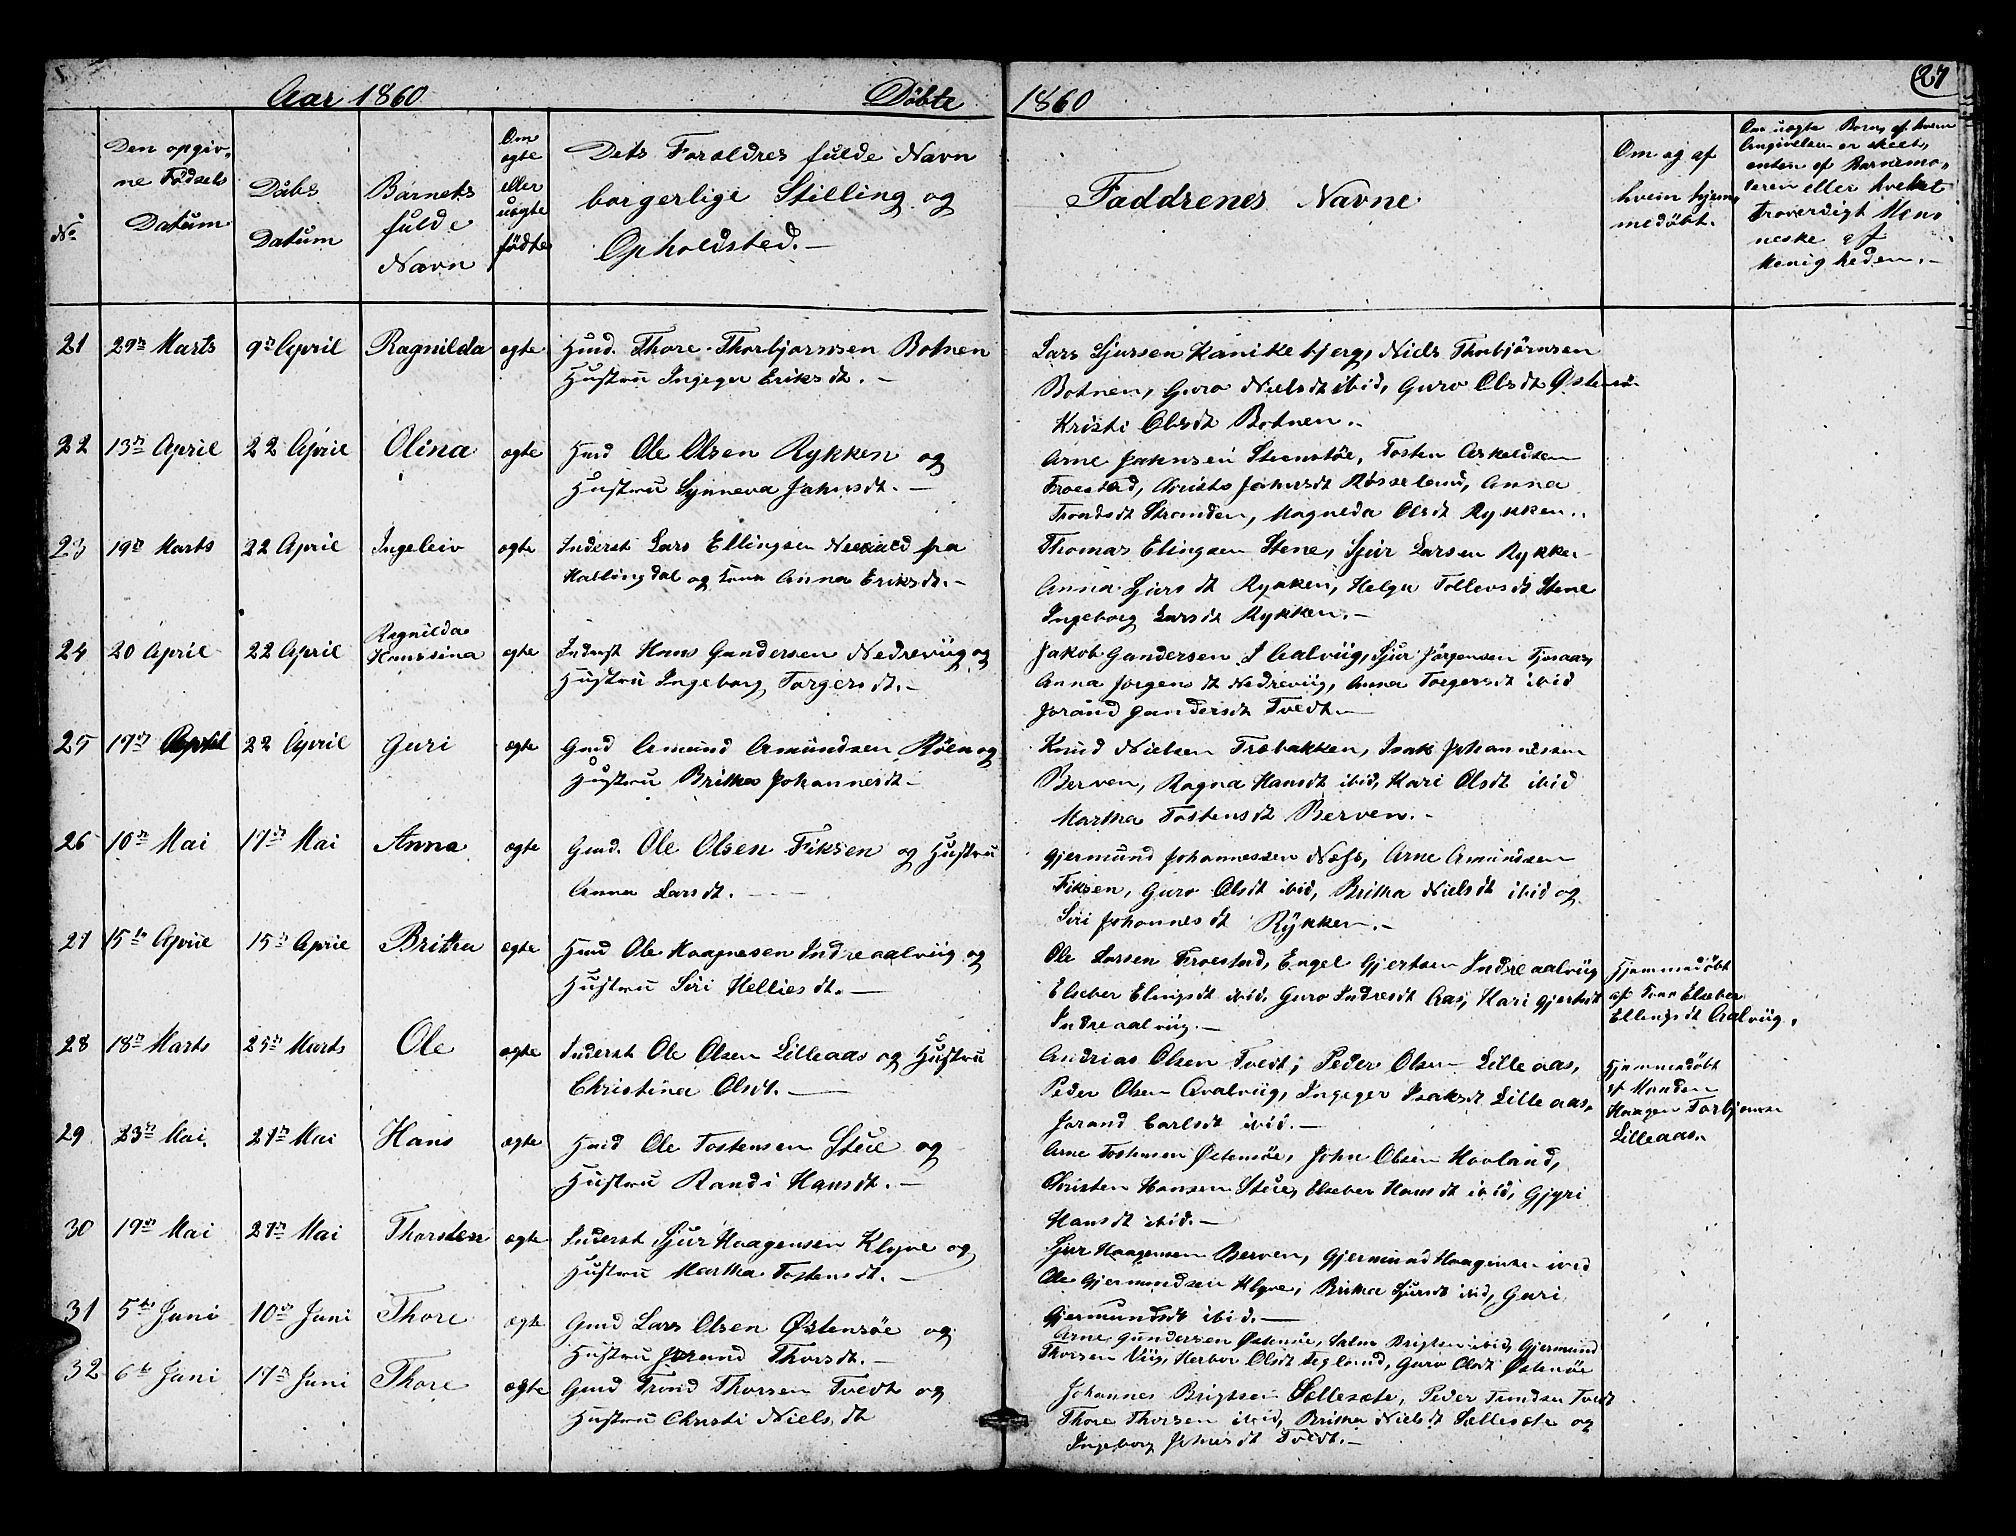 Aar 1860 Døbte 1860 27
No
Den opgiv,
ne Fødsels
Datum
Daabs
Datum
Barnets
fulde
Navn
Om
ægte
eller
uægte
fødte
Dets Forældres fulde Navn
borgerlige Stilling og
Opholdsted.-
Faddrenes Navne
Om og af
hvem hjem,
medøbt.
Om uægte Born, af hvem
Angivelsen er skeet,
enten af Barnemo,
deren eller hvilket
troverdigt Men,
neske af
Menigheden.-
21 29n Marts 9n April Ragnilda ægte Huusd. Thore Thorbjørnsen Botnen
Hustru Ingeger Eriksdt.-
Lars Sjursen Kanikebjerg, Niels Thorbjørnsen
Botnen, Guro Nielsdt ibid, Guro Olsdt Østensø
Kristi Olsdt Botnen.-
22 13n April 22 April Olina ægte Huusd Ole Olsen Rykken og
Hustru Synneva Johnsdt.-
Arne Johnsen Steenstøe, Tosten Askeldsen
Froestad, Christi Johnsdt Røsseland, Anna
Trondsdt Stranden, Magnilda Olsdt Rykken.
23 19n Marts 22 April Ingeleiv ægte Inderst Lars Ellingsen fra
Hallingdal og Kone Anna Eriksdt.-
Thomas Elingsen Stene, Sjur Larsen Rykken
Anna Sjursdt Rykken, Helga Tollevsdt Stene
Ingeborg Larsdt Rykken.-
24 20 April 22 April Ragnilda
Hanssina ægte Inderst Hans Gundersen Nedreviig og
Hustru Ingeborg Torgersdt.-
Jakob Gundersen I Aalviig, Sjur Jørgensen Tjosaas,
Anna Jørgensdt Nedreviig, Anna Torgersdt ibid
Jorand Gundersdt Tvedt.-
25 17n April 22 April Guri ægte Gmd Amund Amundsen Røen og
Hustru Britha Johannesdt-
Knud Nielsen Træbakken, Isak Johannessen
Berven, Ragna Hansdt ibid, Kari Olsdt ibid
Martha Tostensdt Berven.-
26 10n Mai 17n Mai Anna ægte Gmd. Ole Olsen Fiksen og Hustru
Anna Larsdt.-
Gjermund Johannessen Næss, Arne Amundsen
Fiksen, Guro Olsdt ibid, Britha Nielsdt ibid og
Siri Johannesdt Rykken.-
27 15de April 15n April Britha ægte Huusd Ole Haagnesen Indreaalviig og
Hustru Siri Helliesdt.-
Ole Larsen Froestad, Engel Gjertsen Indreaalviig
Elseber Elingsdt ibid, Guro Indresdt Aas, Kari Gjertsdt
Indreaalviig.-
Hjemmedøbt
af Kone Elseber
Ellingsdt Aalviig.
28 18n Marts 25n Marts Ole ægte Inderst Ole Olsen Lilleaas og Hustru
Christina Olsdt.-
Andrias Olsen Tvedt, Peder Olsen Lilleaas,
Peder Olsen Aalviig, Ingeger Isaksdt Lilleaas,
Jorand Carlsdt ibid.-
Hjemmedøbt
af Manden
Haagen Torbjørnsen
Lilleaas.
29 23n Mai 27n Mai Hans ægte Huusd Ole Tostensen Steie og
Hustru Randi Hansdt.-
Arne Tostensen Østensøe, John Olsen Hovland,
Christen Hansen Steie, Elseber Hansdt ibid, Gjyri
Hansdt ibid.-
30 19n Mai 27n Mai Thorsten ægte Inderst Sjur Haagensen Klyve og
Hustru Martha Tostensdt.-
Sjur Haagensen Berven, Gjermund Haagensen ibid
Ole Gjermundsen Klyve, Britha Sjursdt ibid, Guri
Gjermundsdt ibid.-
31 5te Juni 10n Juni Thore ægte Gmd Lars Olsen Østensøe og
Hustru Jorand Thorsdt.-
Arne Gundersen Østensøe, Salm Brigtsen ibid, Gjermund
Thorsen Viig, Herbor Olsdt Tegland, Guro Olsdt Østensøe
32 6te Juni 17n Juni Thore ægte Gmd Trond Thorsen Tvedt og
Hustru Christi Nielsdt
Johannes Brigtsen Sællesæte, Peder Tvedt
Thore Thorsen ibid, Britha Nielsdt Sællesæte og
Ingeborg Johnsdt Tvedt.-